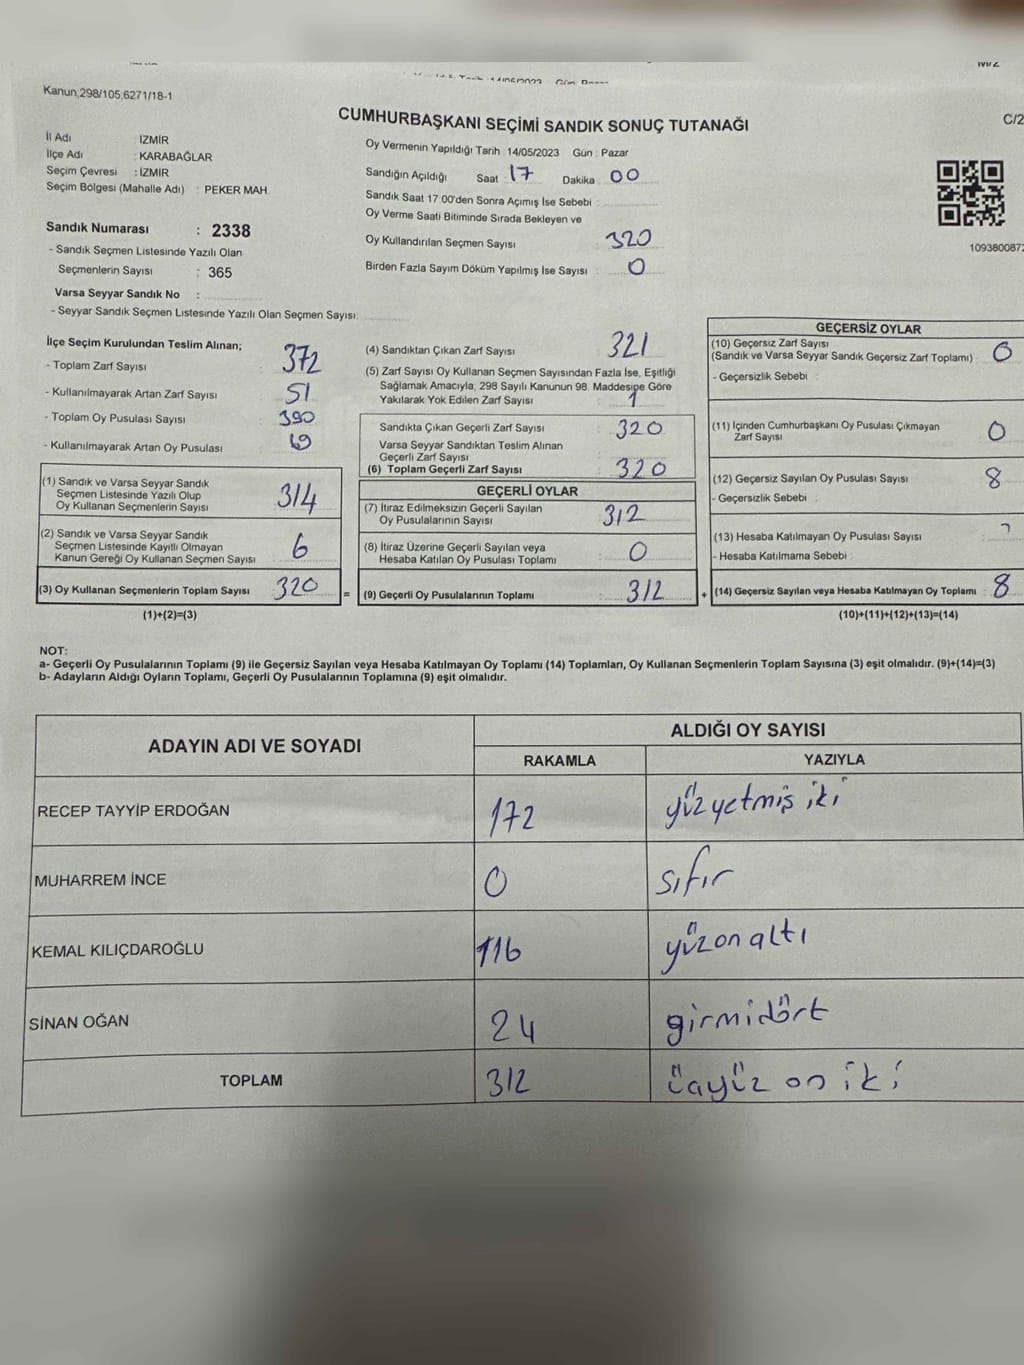 Kanun,298/105,6271/18-1
C/2
CUMHURBAŞKANI SEÇİMİ SANDIK SONUÇ TUTANAĞI
İl Adı : İZMİR
İlçe Adı : KARABAĞLAR
Seçim Çevresi : İZMİR
Seçim Bölgesi (Mahalle Adı) : PEKER MAH.
Oy Vermenin Yapıldığı Tarih : 14/05/2023 Gün : Pazar
Sandığın Açıldığı Saat 17 Dakika 00
Sandık Saat 17:00'den Sonra Açımış İse Sebebi :
Oy Verme Saati Bitiminde Sırada Bekleyen ve
Oy Kullandırılan Seçmen Sayısı : 320
Birden Fazla Sayım Döküm Yapılmış İse Sayısı : 0
1093800872
Sandık Numarası : 2338
- Sandık Seçmen Listesinde Yazılı Olan
Seçmenlerin Sayısı : 365
Varsa Seyyar Sandık No :
- Seyyar Sandık Seçmen Listesinde Yazılı Olan Seçmen Sayısı:
İlçe Seçim Kurulundan Teslim Alınan;
- Toplam Zarf Sayısı : 372
- Kullanılmayarak Artan Zarf Sayısı : 51
- Toplam Oy Pusulası Sayısı : 390
- Kullanılmayarak Artan Oy Pusulası : 69
(1) Sandık ve Varsa Seyyar Sandık
Seçmen Listesinde Yazılı Olup
Oy Kullanan Seçmenlerin Sayısı : 314
(2) Sandık ve Varsa Seyyar Sandık
Seçmen Listesinde Kayıtlı Olmayan
Kanun Gereği Oy Kullanan Seçmen Sayısı : 6
(3) Oy Kullanan Seçmenlerin Toplam Sayısı : 320 =
(1)+(2)=(3)
(4) Sandıktan Çıkan Zarf Sayısı : 321
(5) Zarf Sayısı Oy Kullanan Seçmen Sayısından Fazla İse, Eşitliği
Sağlamak Amacıyla, 298 Sayılı Kanunun 98. Maddesine Göre
Yakılarak Yok Edilen Zarf Sayısı : 1
Sandıkta Çıkan Geçerli Zarf Sayısı : 320
Varsa Seyyar Sandıktan Teslim Alınan
Geçerli Zarf Sayısı :
(6) Toplam Geçerli Zarf Sayısı : 320
GEÇERLİ OYLAR
(7) İtiraz Edilmeksizin Geçerli Sayılan
Oy Pusulalarının Sayısı : 312
(8) İtiraz Üzerine Geçerli Sayılan veya
Hesaba Katılan Oy Pusulası Toplamı : 0
(9) Geçerli Oy Pusulalarının Toplamı : 312 +
GEÇERSİZ OYLAR
(10) Geçersiz Zarf Sayısı
(Sandık ve Varsa Seyyar Sandık Geçersiz Zarf Toplamı) : 0
- Geçersizlik Sebebi :
(11) İçinden Cumhurbaşkanı Oy Pusulası Çıkmayan
Zarf Sayısı : 0
(12) Geçersiz Sayılan Oy Pusulası Sayısı : 8
- Geçersizlik Sebebi :
(13) Hesaba Katılmayan Oy Pusulası Sayısı :
- Hesaba Katılmama Sebebi :
(14) Geçersiz Sayılan veya Hesaba Katılmayan Oy Toplamı : 8
(10)+(11)+(12)+(13)=(14)
NOT:
a- Geçerli Oy Pusulalarının Toplamı (9) ile Geçersiz Sayılan veya Hesaba Katılmayan Oy Toplamı (14) Toplamları, Oy Kullanan Seçmenlerin Toplam Sayısına (3) eşit olmalıdır. (9)+(14)=(3)
b- Adayların Aldığı Oyların Toplamı, Geçerli Oy Pusulalarının Toplamına (9) eşit olmalıdır.
ADAYIN ADI VE SOYADI
ALDIĞI OY SAYISI
RAKAMLA YAZIYLA
RECEP TAYYİP ERDOĞAN 172 yüzyetmiş iki
MUHARREM İNCE 0 sıfır
KEMAL KILIÇDAROĞLU 116 yüzonaltı
SİNAN OĞAN 24 girmidört
TOPLAM 312 üçyüz on iki